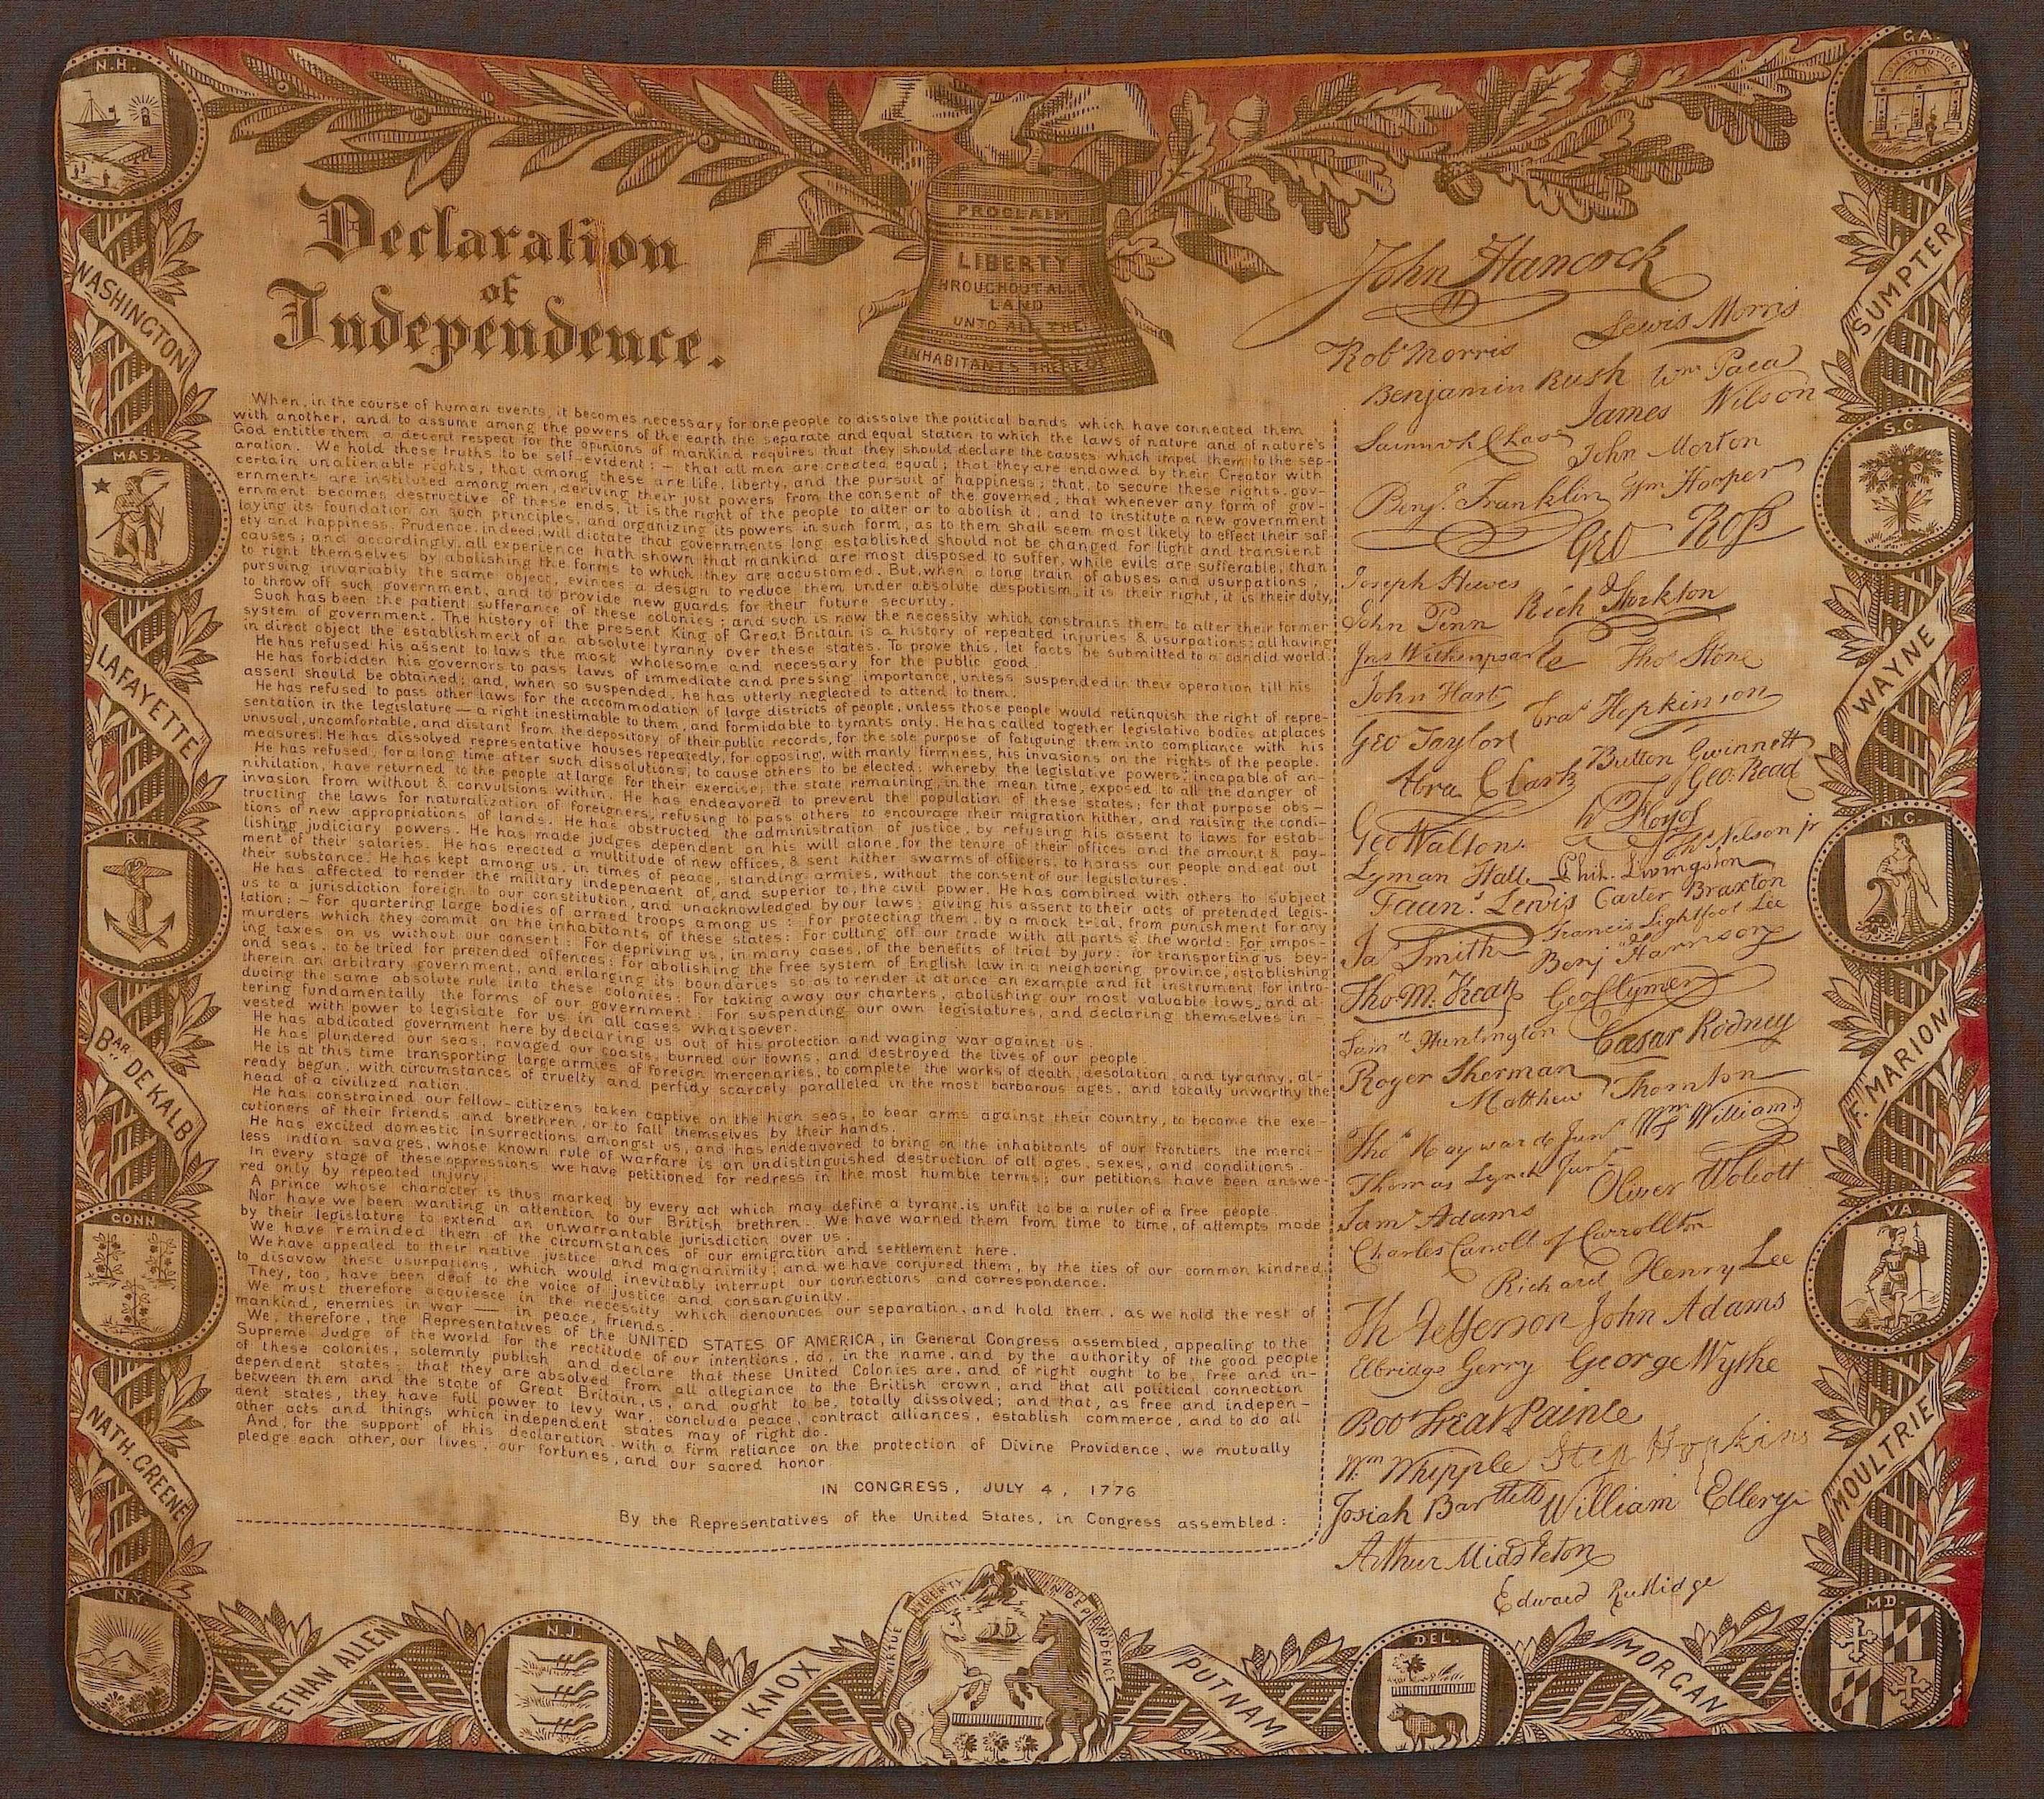 Declaration
of
Independence.
PROCLAIM
LIBERTY
THROUGHOUT ALL
LAND
UNTO ALL THE
INHABITANTS THEREOF
When, in the course of human events, it becomes necessary for one people to dissolve the political bands which have connected them
with another, and to assume among the powers of the earth the separate and equal station to which the laws of nature and of nature's
God entitle them, a decent respect for the opinions of mankind requires that they should declare the causes which impel them to the sep-
aration. We hold these truths to be self-evident: — that all men are created equal; that they are endowed by their Creator with
certain unalienable rights; that among these are life, liberty, and the pursuit of happiness; that, to secure these rights, gov-
ernments are instituted among men, deriving their just powers from the consent of the governed; that whenever any form of gov-
ernment becomes destructive of these ends, it is the right of the people to alter or to abolish it, and to institute a new government
laying its foundation on such principles, and organizing its powers in such form, as to them shall seem most likely to effect their saf
ety and happiness. Prudence, indeed, will dictate that governments long established should not be changed for light and transient
causes; and accordingly, all experience hath shown that mankind are most disposed to suffer, while evils are sufferable, than
to right themselves by abolishing the forms to which they are accustomed. But, when a long train of abuses and usurpations,
pursuing invariably the same object, evinces a design to reduce them under absolute despotism, it is their right, it is their duty,
to throw off such government, and to provide new guards for their future security.
Such has been the patient sufferance of these colonies; and such is now the necessity which constrains them to alter their former
system of government. The history of the present King of Great Britain is a history of repeated injuries & usurpations; all having
in direct object the establishment of an absolute tyranny over these states. To prove this, let facts be submitted to a candid world.
He has refused his assent to laws the most wholesome and necessary for the public good.
He has forbidden his governors to pass laws of immediate and pressing importance, unless suspended in their operation till his
assent should be obtained; and, when so suspended, he has utterly neglected to attend to them.
He has refused to pass other laws for the accommodation of large districts of people, unless those people would relinquish the right of repre-
sentation in the legislature — a right inestimable to them, and formidable to tyrants only. He has called together legislative bodies at places
unusual, uncomfortable, and distant from the depository of their public records, for the sole purpose of fatiguing them into compliance with his
measures. He has dissolved representative houses repeatedly, for opposing, with manly firmness, his invasions on the rights of the people.
He has refused, for a long time after such dissolutions, to cause others to be elected; whereby the legislative powers, incapable of an-
nihilation, have returned to the people at large for their exercise; the state remaining, in the mean time, exposed to all the danger of
invasion from without & convulsions within. He has endeavored to prevent the population of these states; for that purpose obs-
tructing the laws for naturalization of foreigners, refusing to pass others to encourage their migration hither, and raising the condi-
tions of new appropriations of lands. He has obstructed the administration of justice, by refusing his assent to laws for estab-
lishing judiciary powers. He has made judges dependent on his will alone, for the tenure of their offices and the amount & pay-
ment of their salaries. He has erected a multitude of new offices, & sent hither swarms of officers, to harass our people and eat out
their substance. He has kept among us, in times of peace, standing armies, without the consent of our legislatures.
He has affected to render the military indepenaent of, and superior to, the civil power. He has combined with others to subject
us to a jurisdiction foreign to our constitution, and unacknowledged by our laws; giving his assent to their acts of pretended legis-
lation: — for quartering large bodies of armed troops among us: For protecting them, by a mock trial, from punishment for any
murders which they commit on the inhabitants of these states: For culling off our trade with all parts of the world: For impos-
ing taxes on us without our consent: For depriving us, in many cases, of the benefits of trial by jury: for transporting us bey-
ond seas, to be tried for pretended offences: for abolishing the free system of English law in a neighboring province, establishing
therein an arbitrary government, and enlarging its boundaries so as to render it at once an example and fit instrument for intro-
ducing the same absolute rule into these colonies: For taking away our charters, abolishing our most valuable laws, and al-
tering fundamentally the forms of our government: For suspending our own legislatures, and declaring themselves in -
vested with power to legislate for us in all cases whatsoever.
He has abdicated government here by declaring us out of his protection and waging war against us.
He has plundered our seas, ravaged our coasts, burned our towns, and destroyed the lives of our people.
He is at this time transporting large armies of foreign mercenaries, to complete the works of death, desolation, and tyranny, al-
ready begun, with circumstances of cruelty and perfidy scarcely paralleled in the most barbarous ages, and totally unworthy the
head of a civilized nation.
He has constrained our fellow-citizens taken captive on the high seas, to bear arms against their country, to become the exe-
cutioners of their friends and brethren, or to fall themselves by their hands.
He has excited domestic insurrections amongst us, and has endeavored to bring on the inhabitants of our frontiers the merci-
less indian savages, whose known rule of warfare is an undistinguished destruction of all ages, sexes, and conditions.
In every stage of these oppressions we have petitioned for redress in the most humble terms; our petitions have been answe-
red only by repeated injury.
A prince whose character is thus marked by every act which may define a tyrant, is unfit to be a ruler of a free people.
Nor have we been wanting in attention to our British brethren. We have warned them from time to time, of attempts made
by their legislature to extend an unwarrantable jurisdiction over us.
We have reminded them of the circumstances of our emigration and settlement here.
We have appealed to their native justice and magnanimity; and we have conjured them, by the ties of our common kindred,
to disavow these usurpations, which would inevitably interrupt our connections and correspondence.
They, too, have been deaf to the voice of justice and consanguinity.
We must therefore acquiesce in the necessity which denounces our separation, and hold them, as we hold the rest of
mankind, enemies in war — in peace, friends.
We, therefore, the Representatives of the UNITED STATES OF AMERICA, in General Congress assembled, appealing to the
Supreme Judge of the world for the rectitude of our intentions, do, in the name, and by the authority of the good people
of these colonies, solemnly publish and declare that these United Colonies are, and of right ought to be, free and in-
dependent states; that they are absolved from all allegiance to the British crown, and that all political connection
between them and the state of Great Britain, is, and ought to be, totally dissolved; and that, as free and indepen-
dent states, they have full power to levy war, conclude peace, contract alliances, establish commerce, and to do all
other acts and things which independent states may of right do.
And, for the support of this declaration, with a firm reliance on the protection of Divine Providence, we mutually
pledge each other, our lives, our fortunes, and our sacred honor
IN CONGRESS, JULY 4, 1776
By the Representatives of the United States, in Congress assembled:
John Hancock
Lewis Morris
Rob Morris
Benjamin Rush Wm Paca
James Wilson
Samuel Chase
John Morton
Benj. Franklin Wm Hooper
Geo Ross
Joseph Hewes
John Penn Rich Stockton
Thos Stone
John Hart
Fras Hopkinson
Geo Taylor
Button Gwinnett
Abra Clark
Geo. Read
Wm Floyd
Geo Walton.
Ths Nelson jr
Lyman Hall. Phil. Livingston
Faans. Lewis Carter Braxton
Francis Lightfoot Lee
Jas Smith
Benj Harrison
Tho. M. Kean Geo Clymer
Samel Huntington
Cæsar Rodney
Roger Sherman
Matthew Thornton
Wm Williams
Thos Haywards Junr
Thomas Lynch Junr
Oliver Wolcott
Saml Adams
Charles Carroll of Carrollton
Richard Henry Lee
Th Jefferson John Adams
Elbridge Gerry George Wythe
Robt Treat Paine
Wm Whipple Step Hopkins
Josiah Bartlett William Ellery
Arthur Middleton
Edward Rutlidge
N.H.
WASHINGTON
MASS.
LAFAYETTE
R.I.
BAR. DE KALB
CONN.
NATH. GREENE
N.Y.
ETHAN ALLEN
N.J.
H. KNOX
VIRTUE LIBERTY INDEPENDENCE
PUTNAM
DEL.
MORGAN
MD.
MOULTRIE
VA.
F. MARION
N.C.
WAYNE
S.C.
SUMPTER
GA.